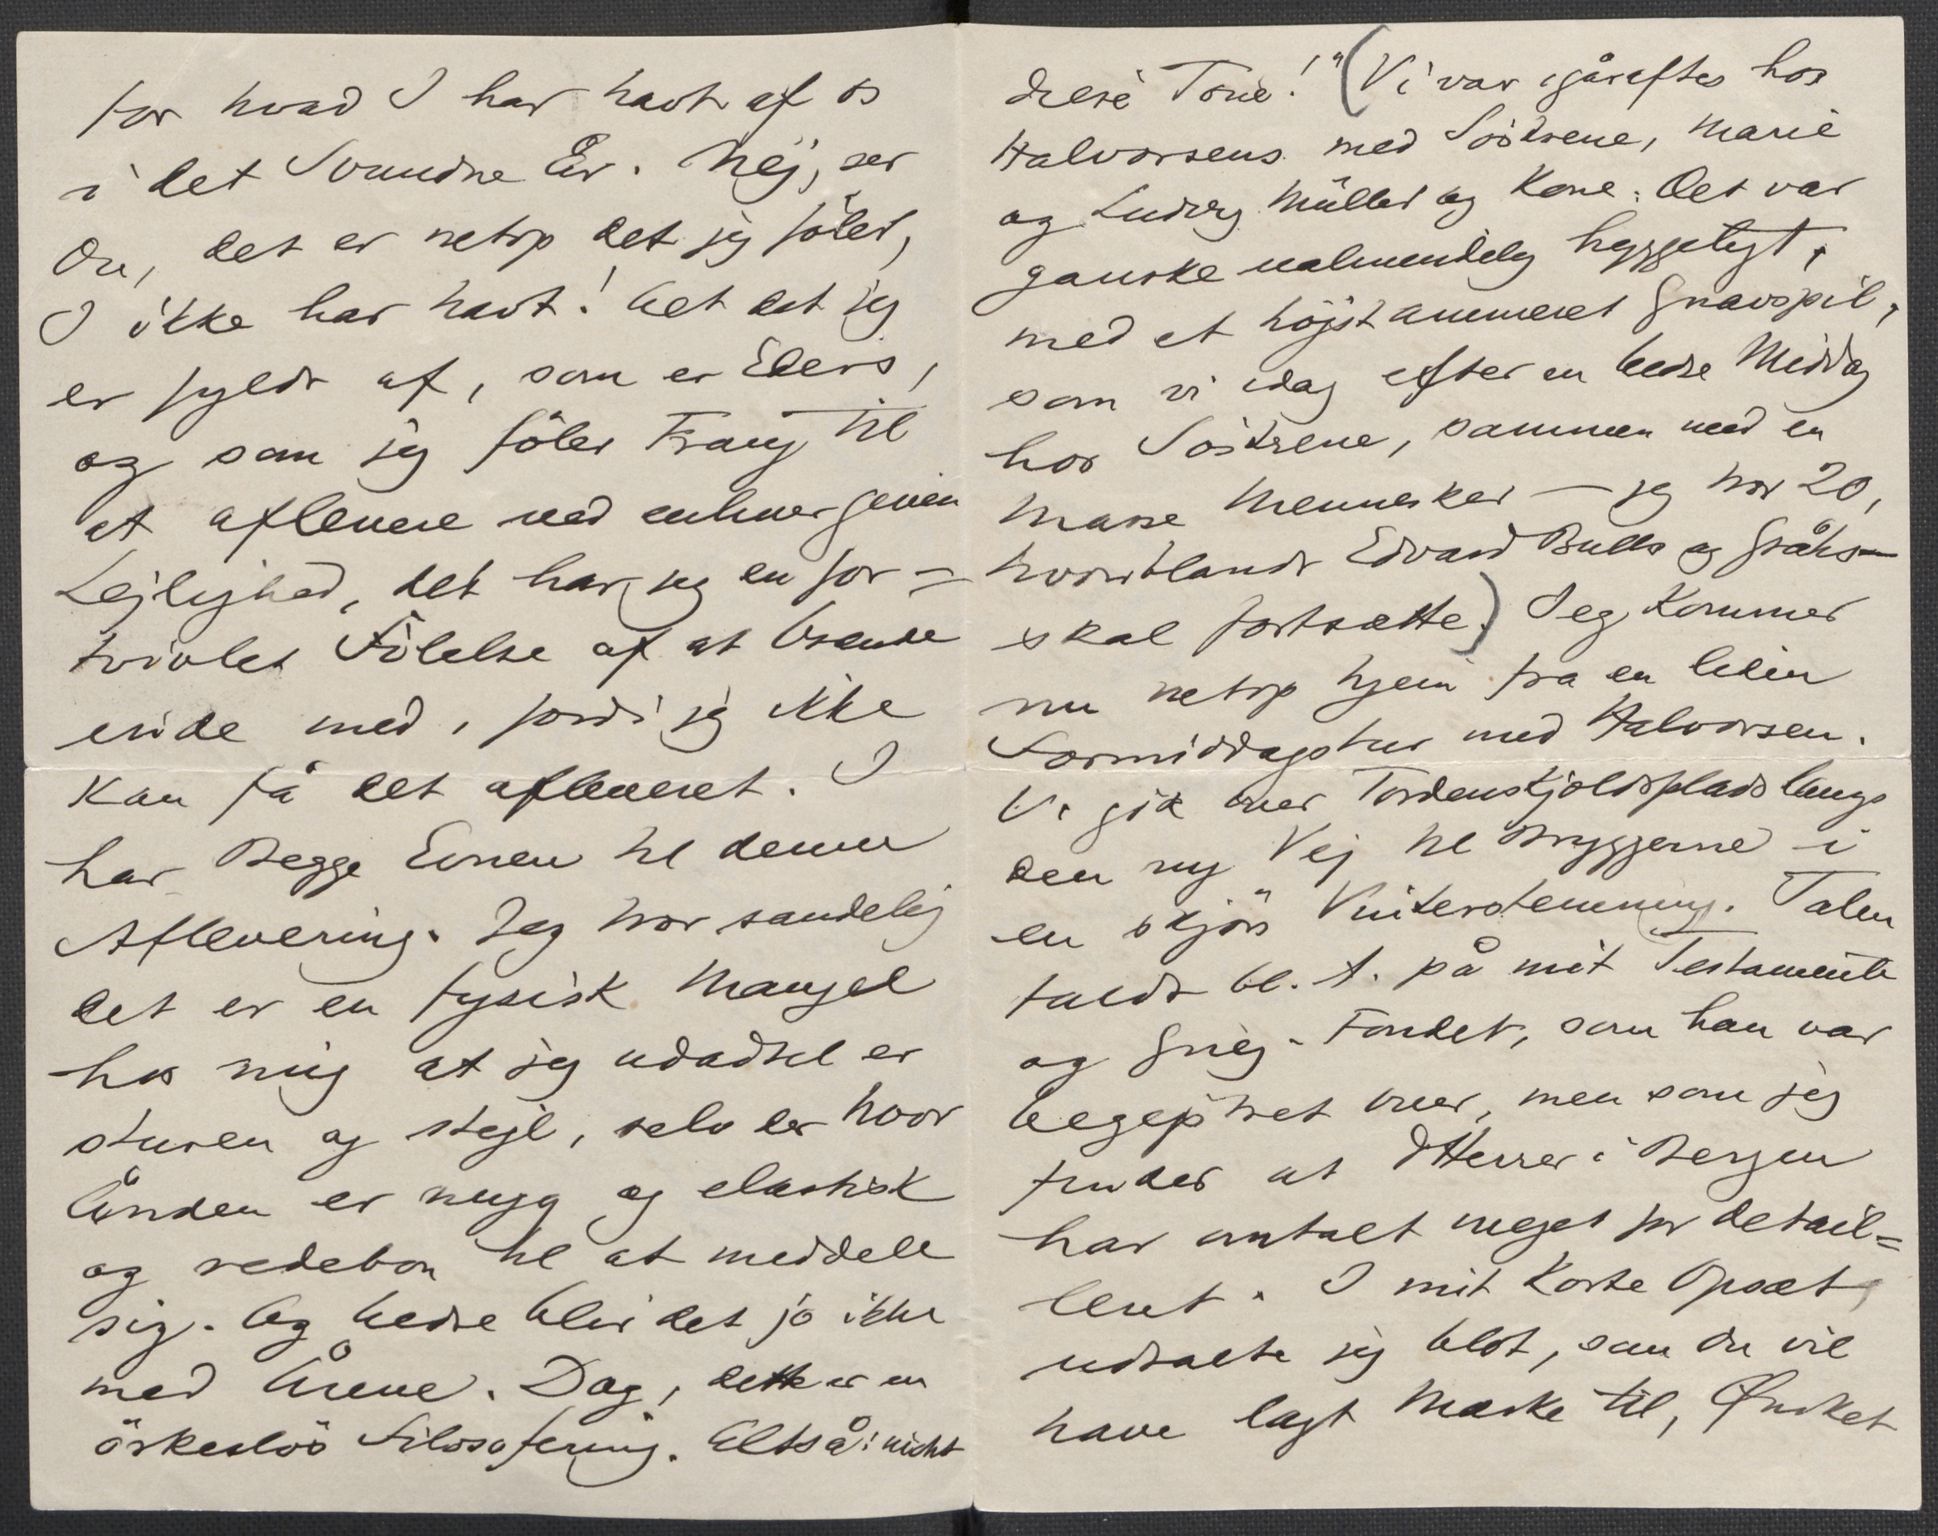 for hvad I har havt af os
i det svundne År. Nej, ser
Du, det er netop det jeg föler,
I ikke har havt! Alt det jeg
er fyldt af, som er Eders,
og som jeg föler Trang til
at aflevere ved enhver given
Lejlighed, det har jeg en for-
tvivlet Fölelse af at brænde
inde med, fordi jeg ikke
kan få det afleveret. I
har Begge Evnen til denne
Aflevering. Jeg tror sandelig
det er en fysisk Mangel
hos mig at jeg udadtil er
sturen og stejl, selv der hvor
Ånden er myg og elastisk
og redebon til at meddele
sig. Og bedre blir det jo ikke
med Årene. Dog, dette er en
örkeslös Filosofering. Altså: "nicht
diese Töne!" (Vi var igåraftes hos
Halvorsens med Söstrene, Marie
og Ludvig Müller og Kone. Det var
ganske ualmindelig hyggeligt,
med et höjst animeret Gnavspil,
som vi idag efter en bedre Middag
hos Söstrene, sammen med en
Masse Mennesker – jeg tror 20,
hvoriblandt Edvard Bulls og
skal fortsætte.) Jeg kommer
nu netop hjem fra en liden
Formiddagstur med Halvorsen.
Vi gik over Tordenskjoldsplads langs
den ny Vej til Bryggerne i
en skjön Vinterstemning. Talen
faldt bl. A. på mit Testamente
og Grieg-Fondet, som han var
begejstret over, men som jeg
finder at DHerrer i Bergen
har omtalt meget for detail=
leret. I mit korte Opsæt
udtalte jeg blot, som Du vil
have lagt Mærke til, Ønsket